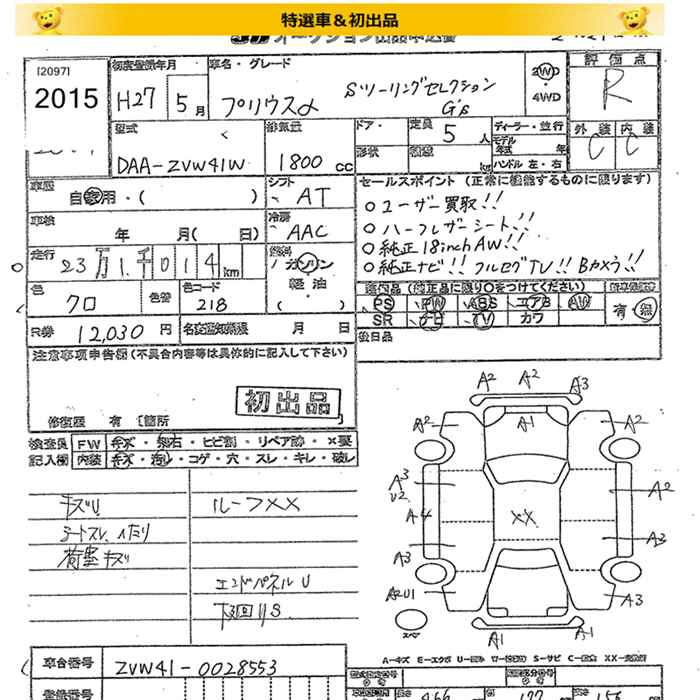 特選車&初出品
[2097]
2015
初度登録年月
H27 5月
車名・グレード
プリウスα Sツーリングセレクション
G's
2WD
・
4WD
評価点
R
外装 内装
C C
型式
DAA-ZVW41W
排気量
1800 cc
ドア・
形状
定員 5 人
積載 kg
ディーラー・並行
モデル
年式 年
ハンドル 左・右
車歴
自家用・( )
シフト
AT
車検
年 月( 日)
冷房
AAC
走行
23万1千014km
燃料
ガソリン
軽油
( )
色
クロ
色替
色コード
218
R券 12,030円
名変期限 月 日
セールスポイント (正常に機能するものに限ります)
○ユーザー買取!!
○ハーフレザーシート!!
○純正18inchAW!!
○純正ナビ!! フルセグTV!! Bカメラ!!
PS PW ABS エアB AW
SR ナビ TV カワ
有 無
後日品
注意事項申告欄(不具合内容等は具体的に記入して下さい)
初出品
修復歴 有 〔箇所
検査員 FW キズ・飛石・ヒビ割・リペア跡・×要
記入欄 内装 キズ・汚レ・コゲ・穴・スレ・キレ・破レ
キズU
シートスレ、ヘタリ
荷室キズ
ルーフXX
エンドパネルU
下回りS
A2 A2 A3
A2 A1 A2
A3
U2
A2
A4 XX
A3 A3
A2U1 A3
スペア
A1 A1
A-キズ E-エクボ U-凹ミ W-波 S-サビ C-腐食 XX-交換済
車台番号 ZVW41-0028553
登録番号